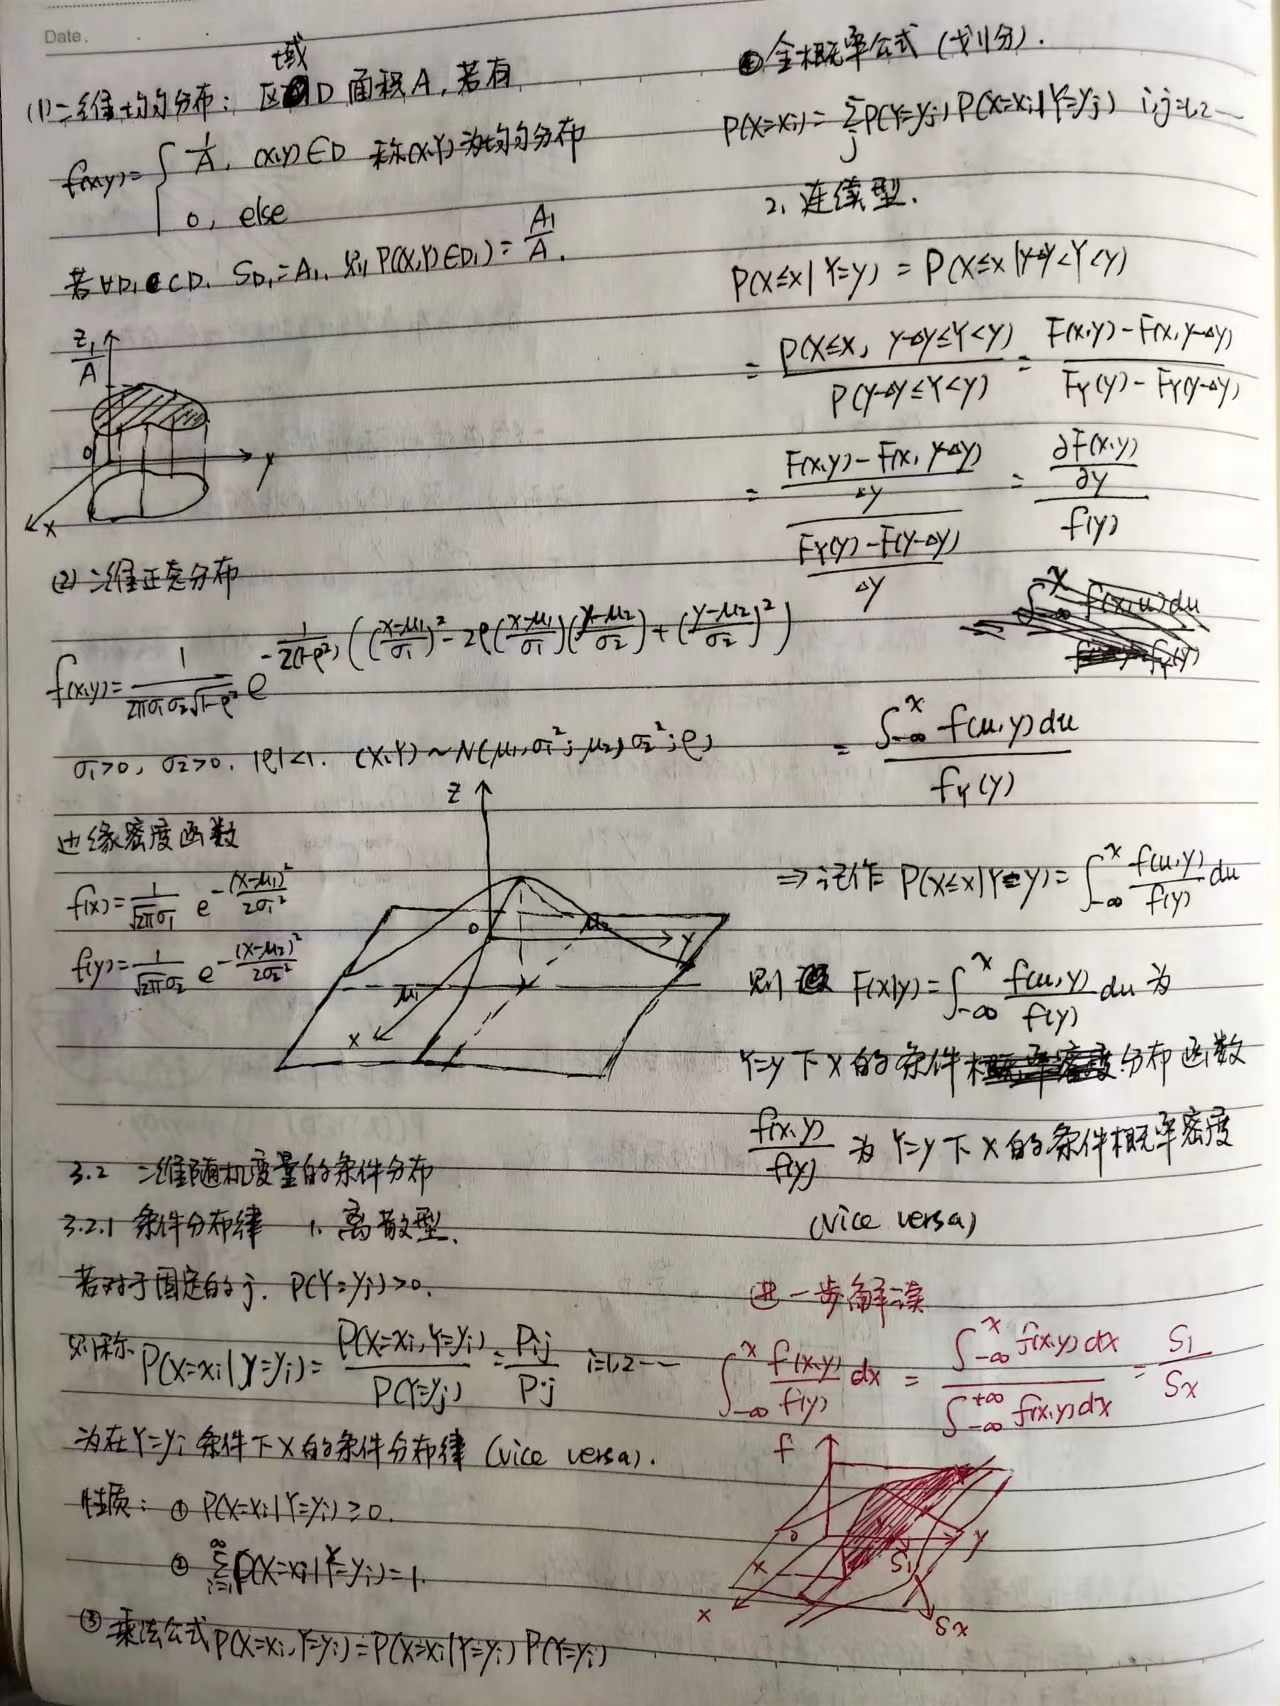 Date.
(1) 二维均匀分布: 区域D 面积A, 若有
f(x,y)= { 1/A, (x,y)∈D 称(X,Y)为均匀分布
0, else
若∀D₁⊂D, S_D₁=A₁, 则 P(X,Y)∈D₁)= A₁/A.
z 1/A
0 y
x
(2) 二维正态分布
f(x,y)= 1/(2πσ₁σ₂√(1-ρ²)) e^{-1/(2(1-ρ²)) (((x-μ₁)/σ₁)² - 2ρ((x-μ₁)/σ₁)((y-μ₂)/σ₂) + ((y-μ₂)/σ₂)²)}
σ₁>0, σ₂>0, |ρ|<1. (X,Y)~N(μ₁,σ₁²; μ₂,σ₂²;ρ)
边缘密度函数
f(x)= 1/(√2π σ₁) e^{-(x-μ₁)²/2σ₁²}
f(y)= 1/(√2π σ₂) e^{-(x-μ₂)²/2σ₂²}
z
0 μ₂ y
μ₁
x
3.2 二维随机变量的条件分布
3.2.1 条件分布律 1. 离散型.
若对于固定的j, P(Y=yj)>0.
则称 P(X=xi|Y=yj)= P(X=xi,Y=yj)/P(Y=yj) = Pij/P·j i=1,2…
为在Y=yj条件下X的条件分布律 (vice versa).
性质: ① P(X=xi|Y=yj)≥0.
② ∑_{i=1}^{∞} P(X=xi|Y=yj)=1.
③ 乘法公式 P(X=xi,Y=yj)=P(X=xi|Y=yj) P(Y=yj)
④ 全概率公式 (划分).
P(X=xi)= ∑_j P(Y=yj) P(X=xi|Y=yj) i,j=1,2…
2. 连续型.
P(X≤x|Y=y) = P(X≤x|y-Δy<Y<y)
= P(X≤x, y-Δy≤Y<y)/P(y-Δy≤Y<y) = (F(x,y)-F(x,y-Δy))/(F_Y(y)-F_Y(y-Δy))
= ((F(x,y)-F(x,y-Δy))/Δy)/((F_Y(y)-F(y-Δy))/Δy) = (∂F(x,y)/∂y)/f(y)
= ∫_{-∞}^{x} f(u,y)du / f_Y(y)
⇒ 记作 P(X≤x|Y=y)= ∫_{-∞}^{x} f(u,y)/f(y) du
则 F(x|y)= ∫_{-∞}^{x} f(u,y)/f(y) du 为
Y=y 下 X 的条件分布函数
f(x,y)/f(y) 为 Y=y 下 X 的条件概率密度
(vice versa)
进一步解读
∫_{-∞}^{x} f(x,y)/f(y) dx = ∫_{-∞}^{x} f(x,y)dx / ∫_{-∞}^{+∞} f(x,y)dx = S₁/Sx
f
0 y
x S₁
x Sx